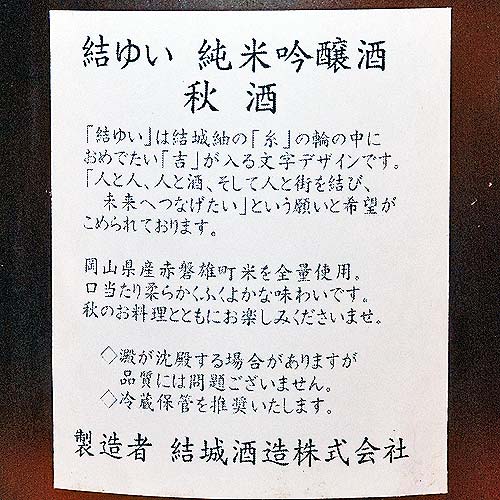 結ゆい 純米吟醸酒
秋 酒
「結ゆい」は結城紬の「糸」の輪の中に
おめでたい「吉」が入る文字デザインです。
「人と人、人と酒、そして人と街を結び、
未来へつなげたい」という願いと希望が
こめられております。
岡山県産赤磐雄町米を全量使用。
口当たり柔らかくふくよかな味わいです。
秋のお料理とともにお楽しみくださいませ。
◇澱が沈殿する場合がありますが
品質には問題ございません。
◇冷蔵保管を推奨いたします。
製造者 結城酒造株式会社